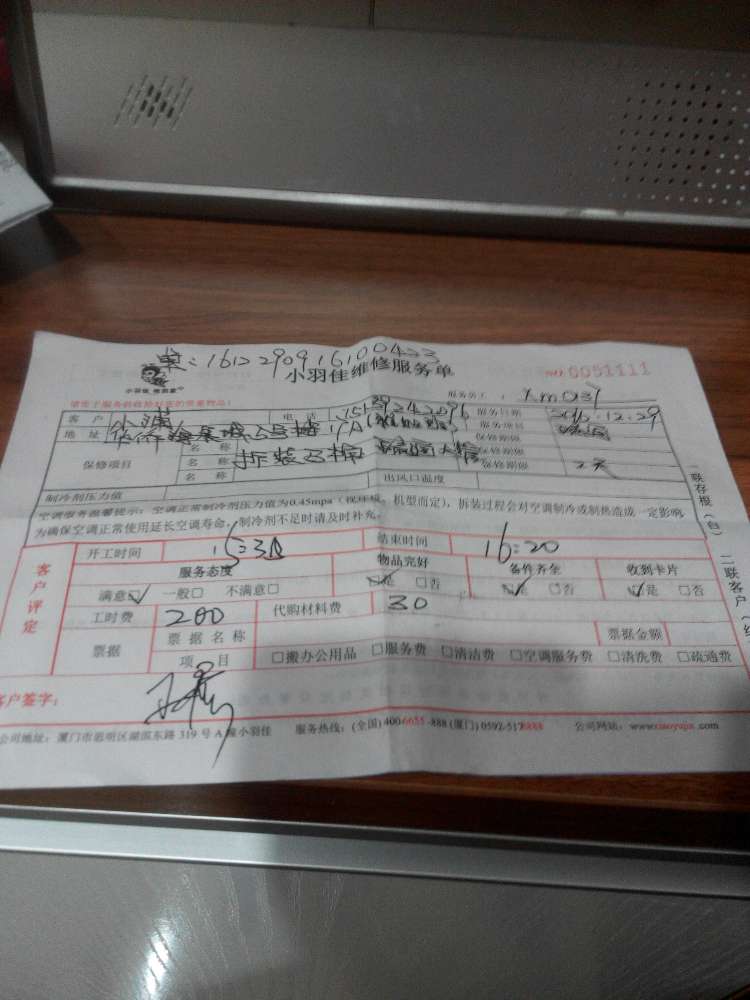 单:1612290916100423
小羽佳维修服务单
NO 0051111
小羽佳 搬到家
服务员工: xm037
客户 电话 服务日期 2016.12.29
地址 服务项目
保修项目 名称 保修期限
名称 保修期限 2天
名称
制冷剂压力值 出风口温度
空调服务温馨提示:空调正常制冷剂压力值为0.45mpa(视环境、机型而定),拆装过程会对空调制冷或制热造成一定影响,
为确保空调正常使用延长空调寿命,制冷剂不足时请及时补充。
一联存根(白) 二联客户
客户评定
开工时间 15:30 结束时间 16:20
服务态度 物品完好 备件齐全 收到卡片
满意☑ 一般□ 不满意□ ☑是 □否 ☑是 □否 ☑是 □否
工时费 200 代购材料费 30
票据 票据名称 票据金额
项目 □搬办公用品 □服务费 □清洁费 □空调服务费 □清洗费 □疏通费
客户签字:
公司地址:厦门市思明区湖滨东路319号A 小羽佳 服务热线:(全国)400-6655-888(厦门)0592-5178888 公司网站:www.xiaoyujia.com